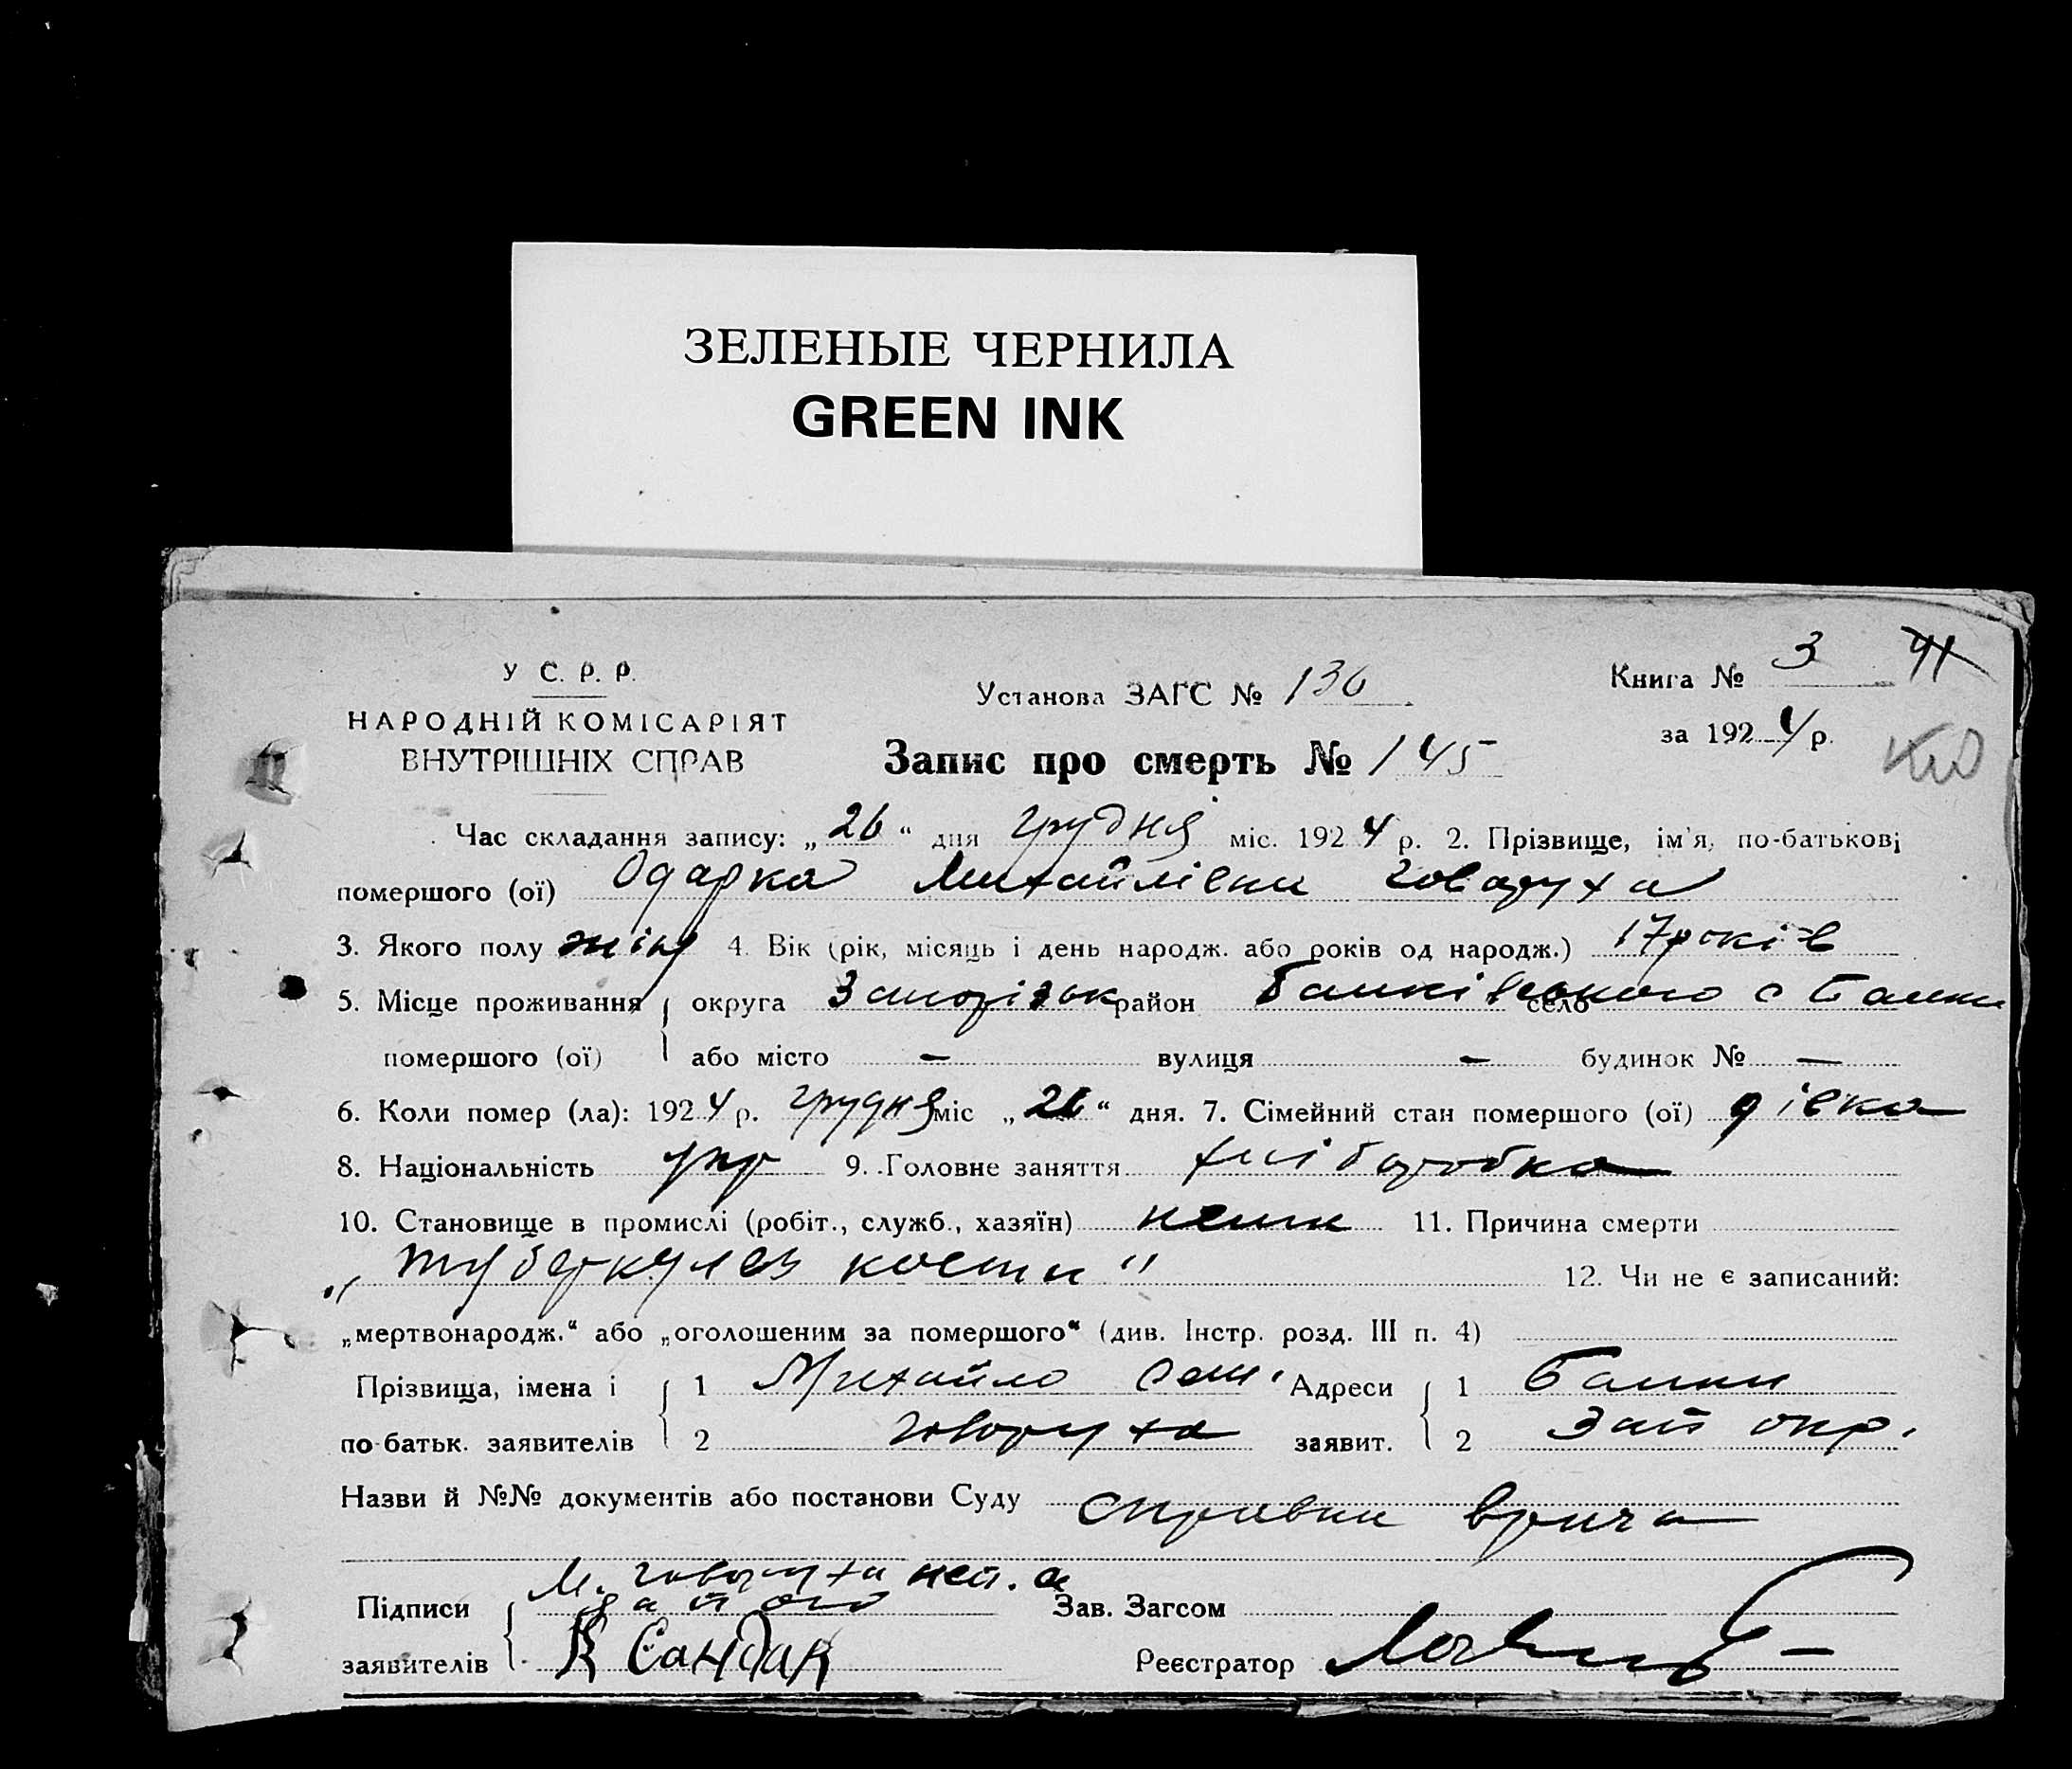 ЗЕЛЕНЫЕ ЧЕРНИЛА
GREEN INK
У С. Р. Р.
НАРОДНІЙ КОМІСАРІЯТ
ВНУТРІШНІХ СПРАВ
Установа ЗАГС № 136
Книга № 3
за 1924 р.
Запис про смерть № 145
Час складання запису: „26“ дня грудня міс. 1924 р. 2. Прізвище, ім'я, по-батькові
помершого (ої) Одарка Михайлівна Говоруха
3. Якого полу жін 4. Вік (рік, місяць і день народж. або років од народж.) 17 років
5. Місце проживання округа Запорізьк район село с
помершого (ої) або місто — вулиця — будинок № —
6. Коли помер (ла): 1924 р. грудня міс „26“ дня. 7. Сімейний стан помершого (ої) дівка
8. Національність укр 9. Головне заняття хліборобка
10. Становище в промислі (робіт., служб., хазяїн) 11. Причина смерти
„туберкулез кости“
12. Чи не є записаний:
„мертвонародж.“ або „оголошеним за помершого“ (див. Інстр. розд. III п. 4)
Прізвища, імена і 1 Михайло Адреси 1
по-батьк. заявителів 2 Говоруха заявит. 2 Зап окр.
Назви й №№ документів або постанови Суду справка врача
Підписи М. Говоруха Зав. Загсом
заявителів К Реєстратор